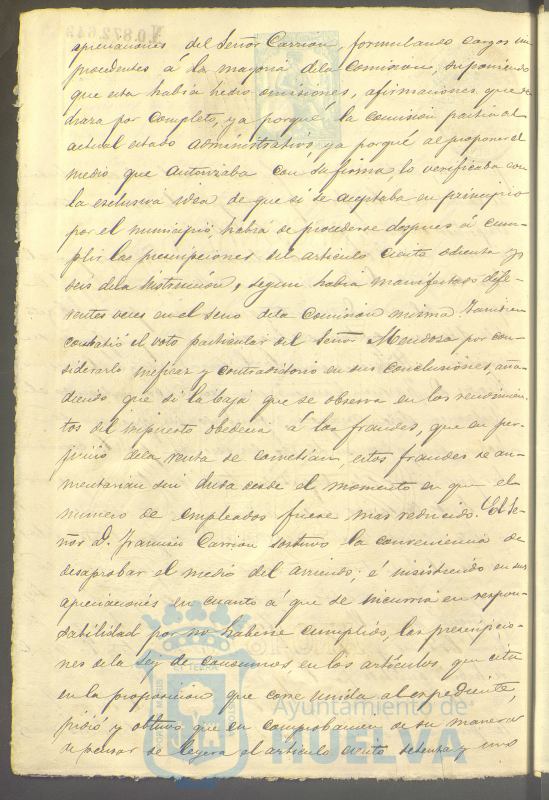 N.0.872.649
apreciaciones del Señor Carrion, formulando cargos im
procedentes á la mayoria dela Comision, suponiendo
que esta habia hecho omisiones, afirmaciones que re
chaza por completo, ya porqué la comision partia del
actual estado administrativo, ya porqué al proponer el
medio que autorizaba con su firma lo verificaba con
la esclusiva idea de que si se aceptaba en principio
por el municipio, habrá de procederse despues á cum-
plir las prescripciones del articulo ciento ochenta y
seis dela Instruccion, segun habia manifestado dife-
rentes veces en el seno dela Comision misma. Tambien
combatió el voto particular del Señor Mendoza por con-
siderarlo ineficaz y contradictorio en sus conclusiones, aña-
diendo que si la baja que se observa en los rendimien-
tos del impuesto obedecia á los fraudes, que en per-
juicio dela renta se cometian, estos fraudes se au-
mentarian sin duda desde el momento en que el
numero de empleados fuese mas reducido. El Se-
ñor D. Francisco Carrion sostuvo la conveniencia de
desaprobar el medio del arriendo; é insistiendo en sus
apreciaciones en cuanto á que se incurria en respon-
sabilidad por no haberse cumplido las prescripcio-
nes de la Ley de Consumos en los artículos que cita
en la proposicion que corre unida al espediente,
pidió y obtuvo que en comprobacion de su manera
de pensar se leyera el articulo ciento setenta y uno
Ayuntamiento de
HUELVA